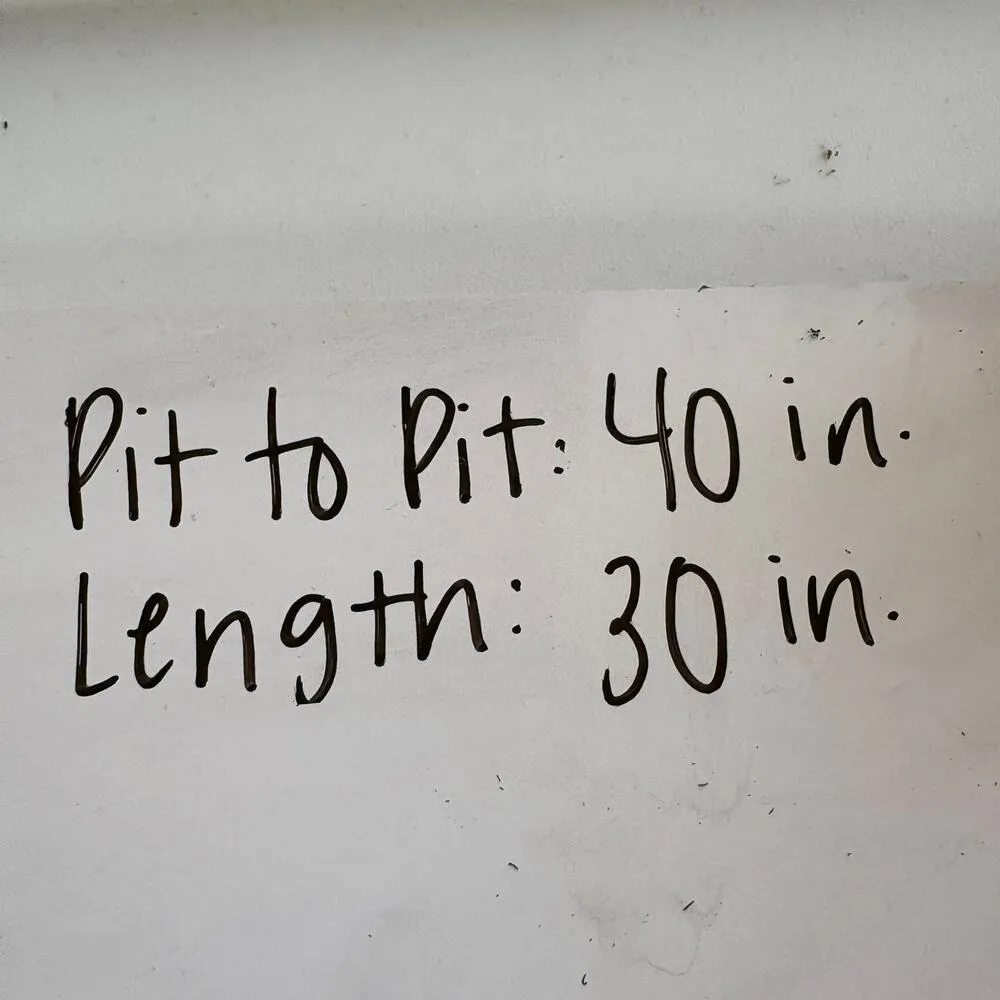 Pit to Pit: 40 in.
Length: 30 in.